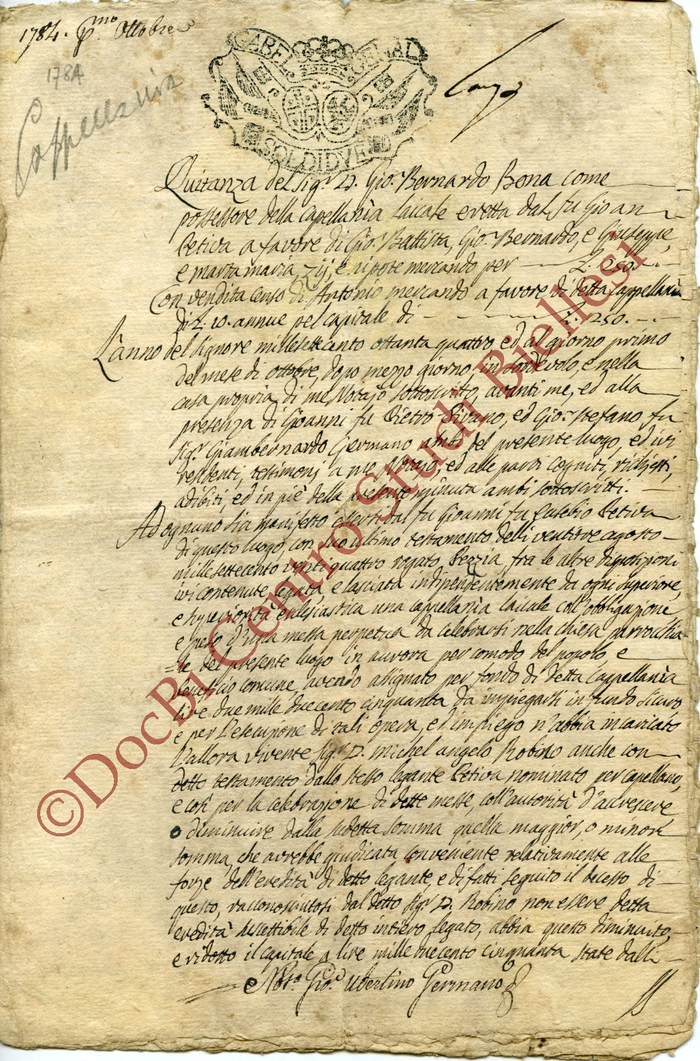 1784. p.mo Ottobre
1784
Cappellania
GABEL GENERAL
SOLDI DVE
Quitanza del Sig.r D. Gio. Bernardo Bona come
possessore della Capellania laicale eretta dal fu Gio an
Cetiva a favore di Gio. Battista, Gio. Bernardo, e Giuseppe,
e marta maria, Zij, e nipote mercando per L. 250.
Con vendita censo di Antonio mercando a favore di detta Cappellania
di L. 10. annue pel capitale di L. 250.
L'anno del Signore millesettecento ottanta quattro ed al giorno primo
del mese di ottobre, dopo mezzo giorno, in Sordevolo, e nella
casa propria di me Notajo sottoscritto, avanti me, ed alla
presenza di Gioanni fu Pietro Rivano, ed Gio. Stefano fu
Sig.r Giambernardo Germano ambi del presente luogo, ed ivi
residenti, testimonj a me Notajo, ed alle parti cogniti, richiesti,
adibiti, ed in piè della presente minuta ambi sottoscritti.
Ad ognuno sia manifesto che fu Gioanni fu Eusebio Cetiva
di questo luogo, con suo ultimo testamento delli ventitre agosto
mille settecento venti quattro rogato Perzia, fra le altre disposizioni
ivi contenute, legata, e lasciata indipendentemente da ogni superiore,
e superiorità eclesiastica una cappellania laicale coll'obbligazione
e peso d'una messa perpetua da celebrarsi nella chiesa parrocchia
=le del presente luogo in aurora per comodo del popolo, e
beneficio comune, avendo assignato per fondo di detta Cappellania
lire due mille due cento cinquanta da impiegarsi in fondo sicuro,
e per l'esecuzione di tali opera, ed impiego n'abbia incaricato
l'allora vivente Sig.r D. Michel angelo Robino anche con
detto testamento dallo stesso legante Cetiva nominato per capellano,
e così per la celebrazione di dette messe, coll'autorità d'accrescere
o diminuire dalla sudetta somma quella maggior, o minor
somma, che avrebbe giudicata conveniente relativamente alle
forze dell'eredità di detto legante, e di fatti seguito il decesso di
questo, riconosciutosi dal detto Sig.r D. Robino non essere detta
eredità suscettibile di detto intiero legato, abbia questo diminuito,
e ridotto il capitale a lire mille trecento cinquanta state dalli
Not.o Gio. Ubertino Germano